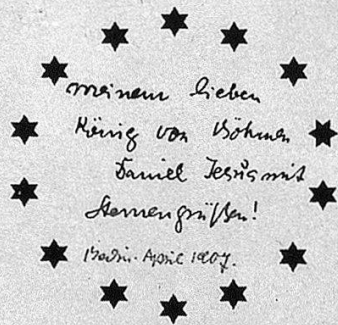 meinem lieben
König von Böhmen
Daniel Jesus mit
Sternengrüßen!
Berlin. April 1907.